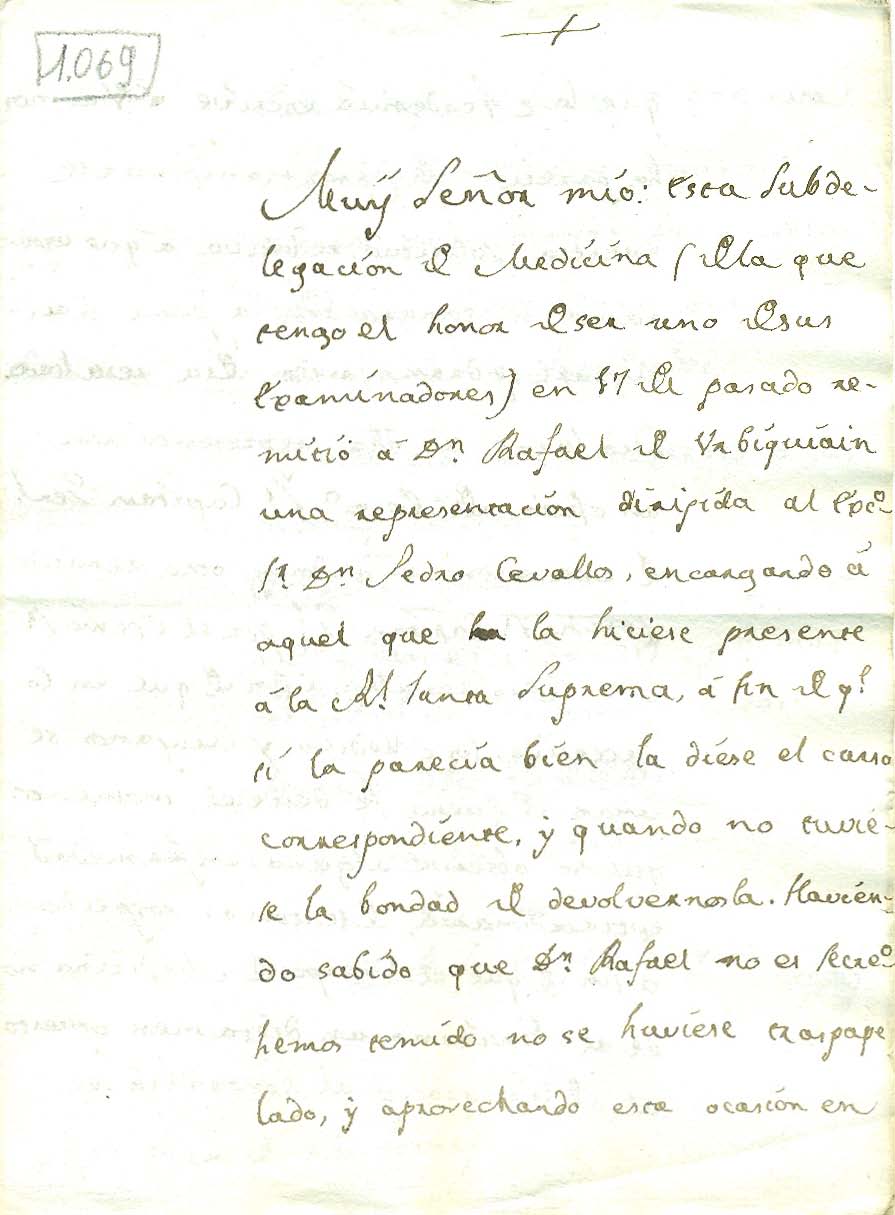 1.069
+
Muÿ Señor mío: esta Subde-
legación de Medicina (de la que
tengo el honor de ser uno de sus
Examinadores) en 17 del pasado re-
mitió á Dn. Rafael de Urbiquiain
una representación dirigida al Exco.
Sr. Dn. Pedro Cevallos, encargando á
aquel que la hiciese presente
á la Rl. Junta Suprema, á fin de qe.
si la parecía bien la diese el curso
correspondiente, ÿ quando no tuvie-
se la bondad de devolvernosla. Havien-
do sabido que Dn. Rafael no es Secreo.
hemos temido no se huviese traspape
lado, ÿ aprovechando esta ocasión en